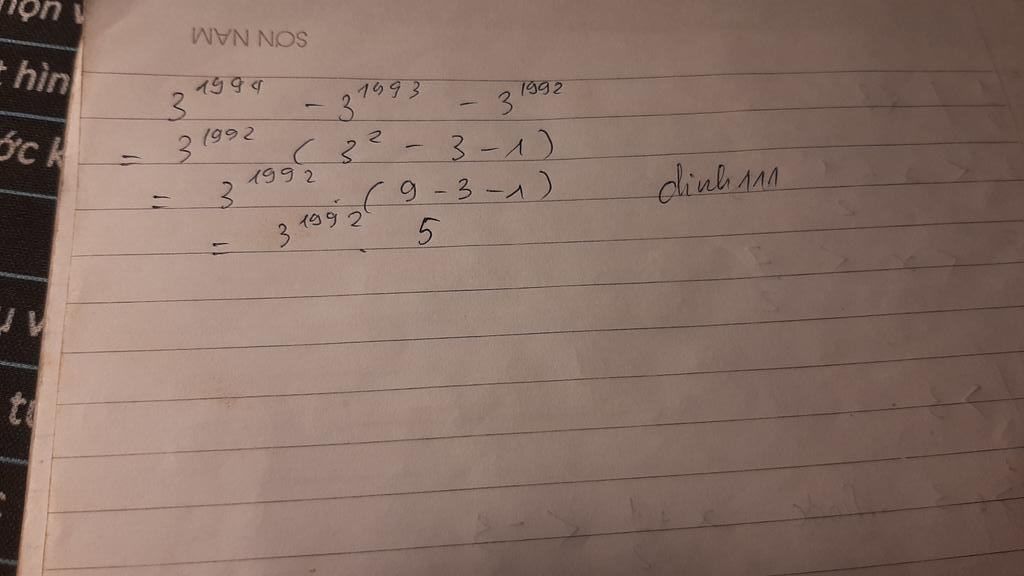 họn v
t hìn
ớc k
ụ v
tu
SON NAM
3^1994 - 3^1993 - 3^1992
= 3^1992 ( 3^2 - 3 - 1 )
= 3^1992 . ( 9 - 3 - 1 ) dinh111
= 3^1992 . 5